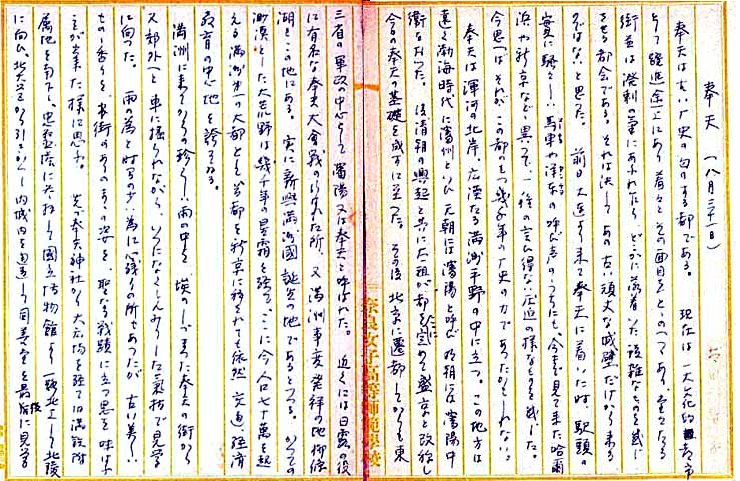 奉天 (八月三十一日)
奉天は古い歴史の匂のする都である。 現在は一大文化的都市
として躍進途上にあり着々とその面目をとゝのへつゝあり、堂々たる
街並は溌剌の氣にあふれたうちどこかに落着いた複雑なものを感じ
させる都会である。それは決してあの古い頑丈な城壁だけから来る
のではないと思った。 前日大連より来て奉天に着いた時 駅頭の
に騒々しい馬車や洋車の呼び声のうちにも、今まで見て来た哈爾
浜や新京などゝ異って、一種の言ひ得ない圧迫の様なものを感じた。
今思へばそれがこの都のもつ幾千年の歴史の力であったかもしれない。
奉天は渾河の北岸、広漠たる満洲平野の中に立つ。この地方は
遠く渤海時代に瀋州といひ元朝には瀋陽と呼び明朝には瀋陽中
衛となった。 後清朝の興起と共に太祖が都を定めて盛京と改称し
今日の奉天の基礎を成すに至った。その後 北京に遷都してからも東
三省の軍政の中心として瀋陽又は奉天と呼ばれた。 近くには日露の役
に有名な奉天大会戦の行はれた所、又満洲事変発祥の地柳條
湖もこの地にある。 実に新興満洲國誕生の地であるといへる。 かつての
漠とした大荒野は幾千年の星霜を経てこゝに今人口七十萬を越
える満洲第一の大都として首都を新京に移されても依然 交通、経済
教育の中心地を誇ってゐる。
満洲に来てからの珍しい雨の中を 埃のしづまった奉天の街から
又郊外へと車に揺られながら、いつになくしんみりした氣持で見学
に向った。 雨の為と時間の少い為に心残りの所もあったが 古い美しい
もの香りを、 街のありのまゝの姿を、聖なる戦蹟に立つ思を味はふ
ことが出来た様に思ふ。 先づ奉天神社から大広場を経て旧満鉄附
属地を南下し、忠霊塔に参拝して國立博物館より一路北上して北陵
に向ひ、北大営から引きかへして内城内を通って同善堂を最後に見学
奈良女子高等師範學校